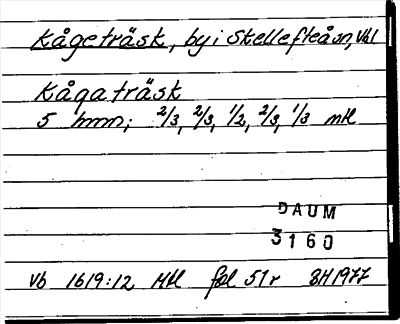 Kågeträsk, by i Skellefteå sn, Vbl
Kågaträsk
5 hmn; 2/3, 2/3, 1/2, 2/3, 1/3 mtl
DAUM
3160
Vb 1619:12 Mtl fol 51r BH1977